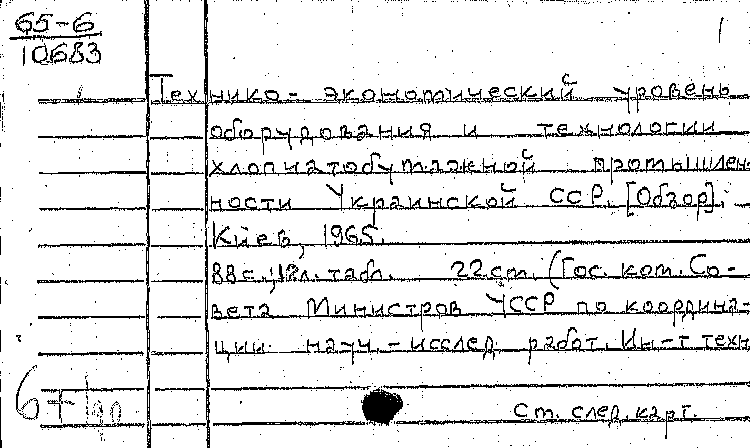 65-6
10683
1
Технико-экономический уровень
оборудования и технологии
хлопчатобумажной промышлен-
ности Украинской ССР. [Обзор].
Киев, 1965.
88 с.; 12 л. табл. 22 см. (Гос. ком. Со-
вета Министров УССР по координа-
ции науч.-исслед. работ. Ин-т техн
См. след. карт.